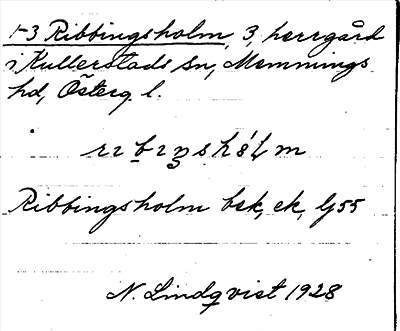 1-3 Ribbingsholm, 3, herrgård
i Kullerstads sn, Memmings
hd, Österg. l.
Ribbingsholm bsk, ek, Lj 55
N. Lindqvist 1928